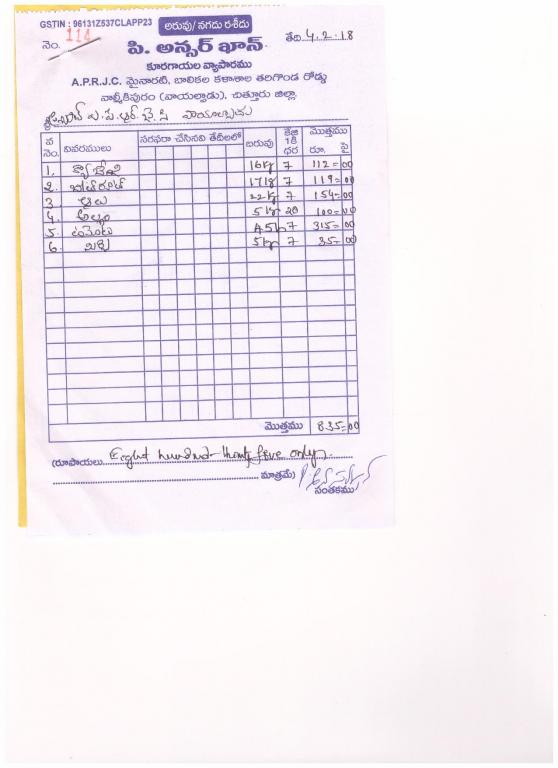 GSTIN : 96131Z537CLAPP23
అరువు/ నగదు రశీదు
నెం. 114
తేది 4.2.18
పి. అన్సర్ ఖాన్.
కూరగాయల వ్యాపారము
A.P.R.J.C. మైనారటి, బాలికల కళాశాల తరిగొండ రోడ్డు
వాల్మీకిపురం (వాయల్పాడు), చిత్తూరు జిల్లా.
వ నెం. వివరములు సరఫరా చేసినవి తేదీలలో బరువు కేజి 1కి ధర మొత్తము రూ. పై
1. క్యాబేజి 16kg 7 112=00
2. బీట్‌రూట్ 17kg 7 119=00
3. ఆలు 22kg 7 154=00
4. అల్లం 5kg 20 100=00
5. టమోటో 45kg 7 315=00
6. మిర్చి 5kg 7 35=00
మొత్తము 835=00
(రూపాయలు Eight hundred thirty five only.
మాత్రమే)
సంతకము